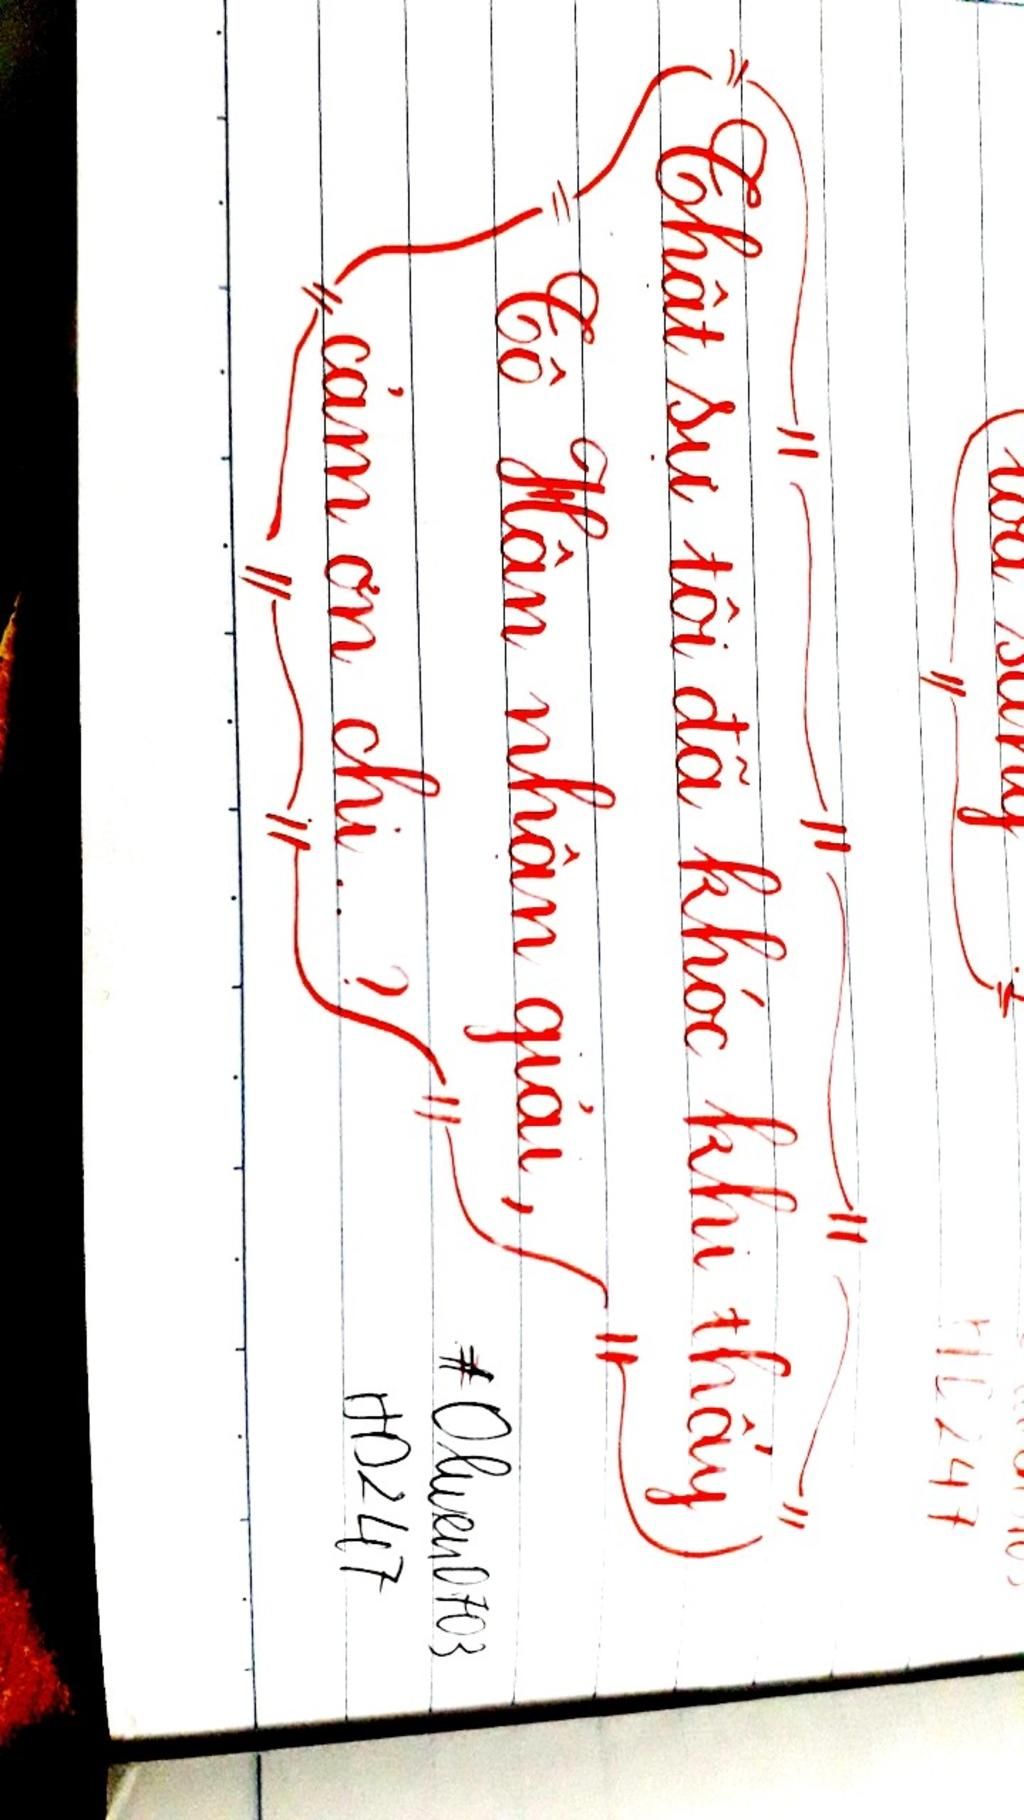 toả sáng
HD247
Thật sự tôi đã khóc khi thấy
Cô Hân nhận giải,
cảm ơn chị..?
#Ohuen0703
HD247